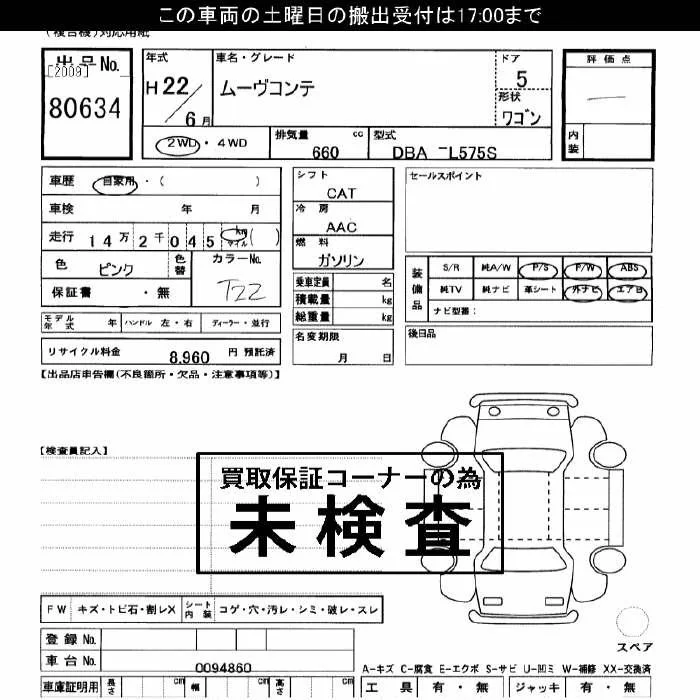 この車両の土曜日の搬出受付は17:00まで
(複合機)対応用紙
出品No.
[2009]
80634
年式
H 22 / 6 月
車名・グレード
ムーヴコンテ
ドア
5
形状
ワゴン
評価点
―
内装
2WD・4WD
排気量 cc
660
型式
DBA -L575S
車歴 自家用・( )
車検 年 月
走行 14万2千045 km マイル ( )
色 ピンク
色替
カラーNo.
T22
保証書 ・ 無
シフト
CAT
冷房
AAC
燃料
ガソリン
乗車定員 名
積載量 kg
総重量 kg
セールスポイント
装備品
S/R 純A/W P/S P/W ABS
純TV 純ナビ 革シート 外ナビ エアB
ナビ型番:
モデル年式 年 ハンドル 左・右 ディーラー・並行
リサイクル料金 8,960 円 預託済
名変期限
月 日
後日品
【出品店申告欄(不良箇所・欠品・注意事項等)】
【検査員記入】
買取保証コーナーの為
未検査
FW キズ・トビ石・割レX シート内装 コゲ・穴・汚レ・シミ・破レ・スレ
登録No.
車台No. 0094860
スペア
A-キズ C-腐食 E-エクボ S-サビ U-凹ミ W-補修 XX-交換済
車庫証明用 長さ cm 幅 cm 高さ cm
工具 有・無 ジャッキ 有・無